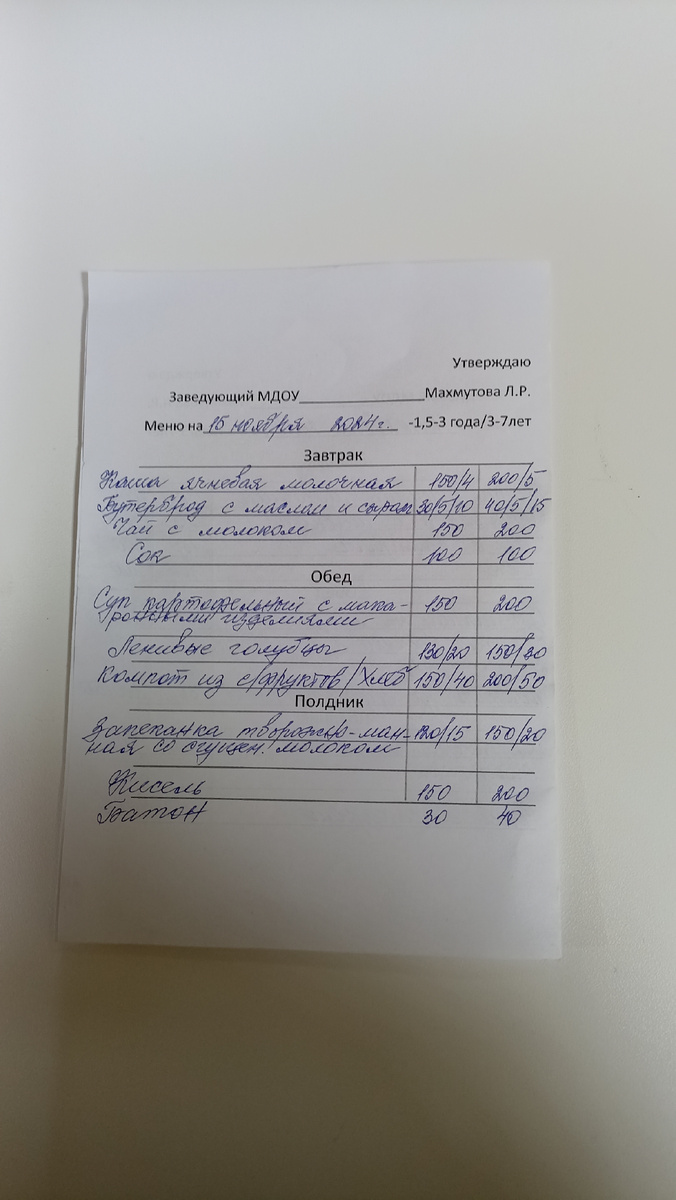 Утверждаю
Заведующий МДОУ_______________Махмутова Л.Р.
Меню на 15 ноября 2024г. -1,5-3 года/3-7лет
Завтрак
Каша ячневая молочная 150/4 200/5
Бутерброд с маслом и сыром 30/5/10 40/5/15
Чай с молоком 150 200
Сок 100 100
Обед
Суп картофельный с мака- 150 200
ронными изделиями
Ленивые голубцы 130/20 150/30
Компот из с/фруктов/Хлеб 150/40 200/50
Полдник
Запеканка творожно-ман- 120/15 150/20
ная со сгущен. молоком
Кисель 150 200
Батон 30 40